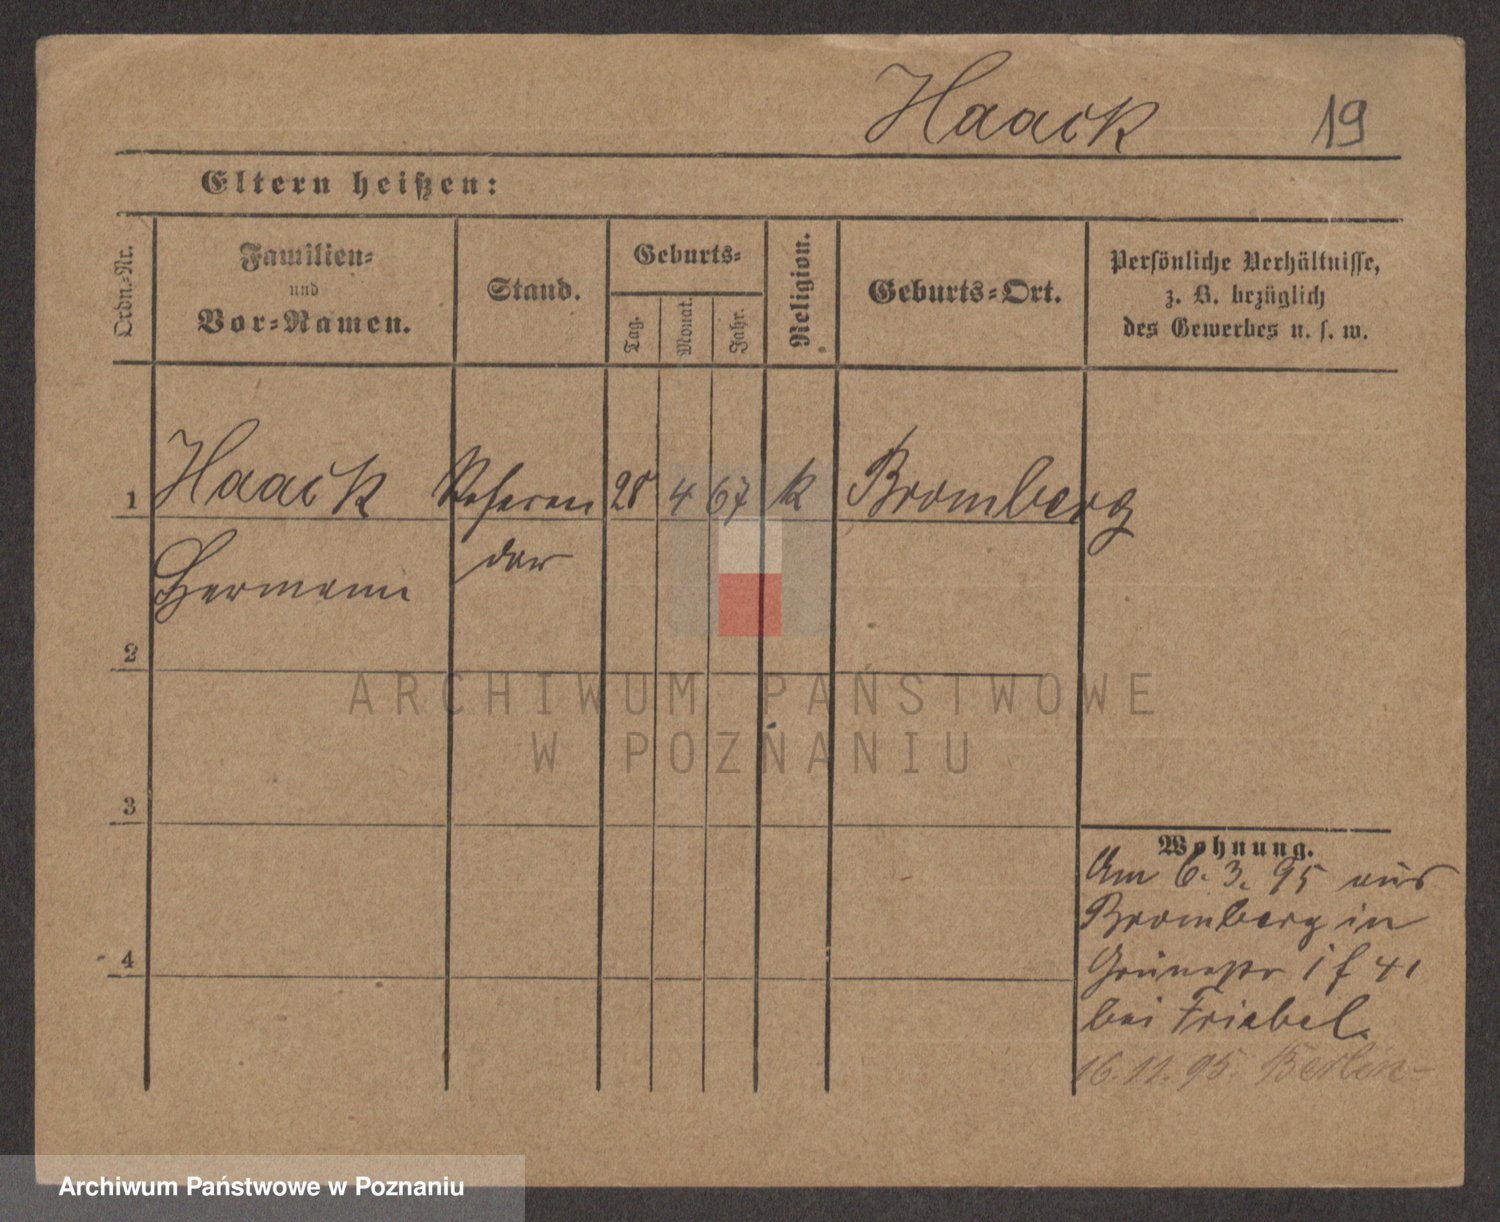 Haack 19
Eltern heißen:
Ordn.-Nr.
Familien-
und
Vor-Namen.
Stand.
Geburts-
Tag.
Monat.
Jahr.
Religion.
Geburts-Ort.
Persönliche Verhältnisse,
z. B. bezüglich
des Gewerbes u. s. w.
1 Haack Referen 28 4 67 k Bromberg
Hermann dar
2
3
4
Wohnung.
Am 6. 3. 95 aus
Bromberg in
41
bei Friebel.
16. 11. 95. Berlin
ARCHIWUM PAŃSTWOWE
W POZNANIU
Archiwum Państwowe w Poznaniu